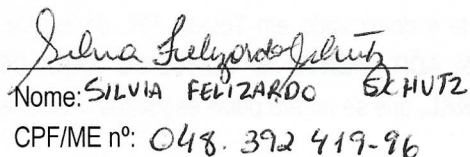 Silvia Felizardo Schutz
Nome: SILVIA FELIZARDO SCHUTZ
CPF/ME nº: 048.392 419-96